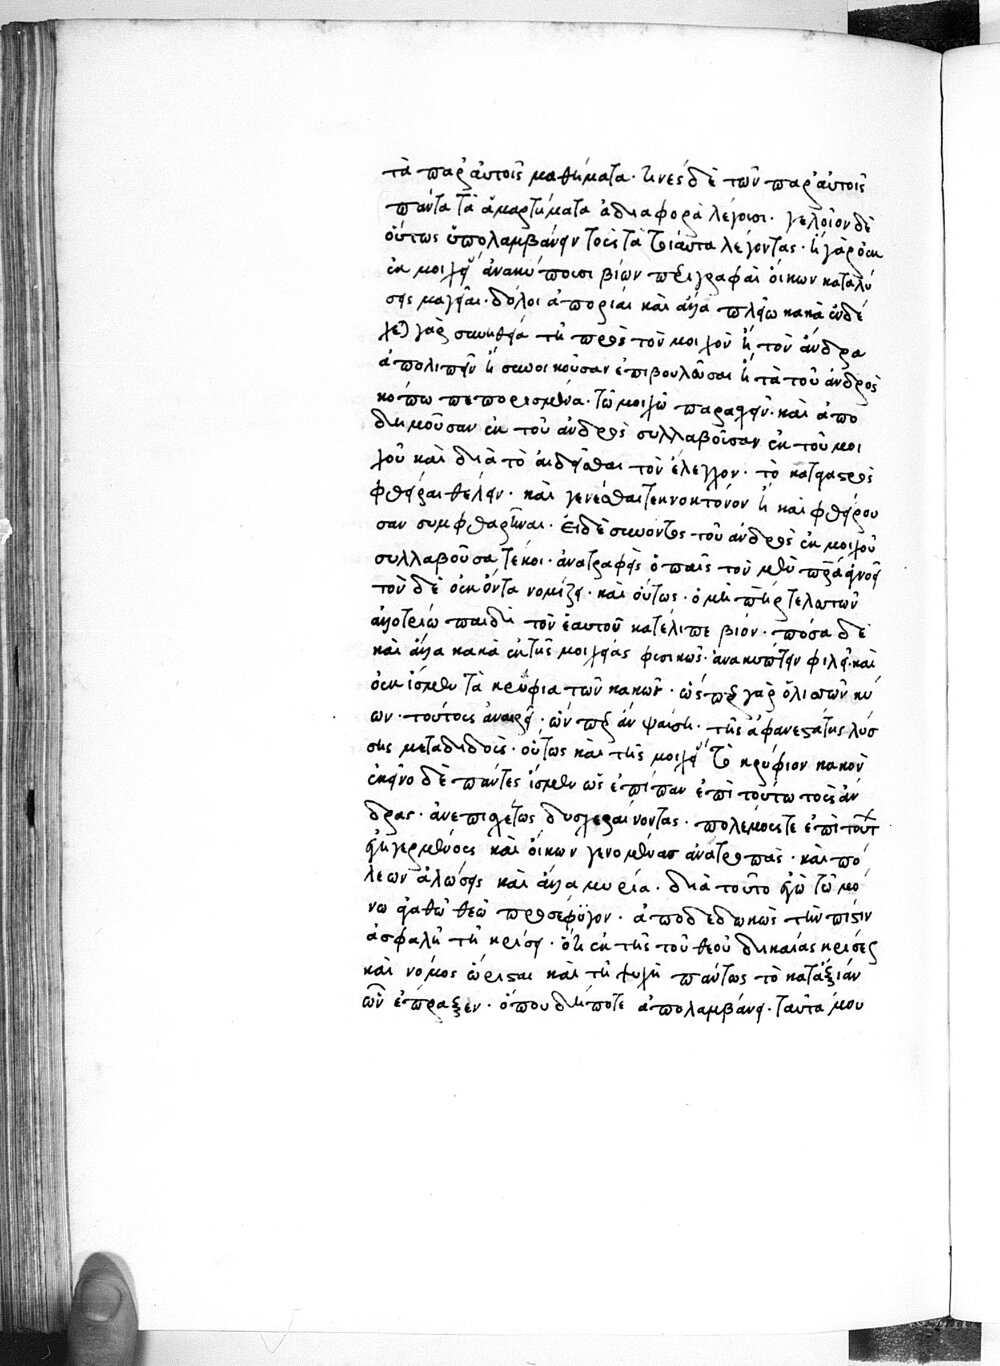 τὰ παρ' αὐτοῖς μαθήματα· τινὲς δὲ τῶν παρ' αὐτοῖς
πάντα τὰ ἁμαρτήματα ἀδιαφορὰ λέγουσι· γελοῖον δὲ
οὕτως ὑπολαμβάνειν τοὺς τὰ τοιαῦτα λέγοντας· ἢ γὰρ οὐκ
ἐκ μοιχείας ἀνακύπτουσι βίων περιγραφαὶ οἴκων καταλύ
σεις μαγεῖαι· δόλοι ἀπορίαι καὶ ἄλλα πλείω κακὰ ἐνδέ
χεται γὰρ συνηθεία τῇ πρὸς τὸν μοιχὸν ἢ τὸν ἄνδρα
ἀπολιπεῖν ἢ συνοικοῦσαν ἐπιβουλεῦσαι ἢ τὰ τοῦ ἀνδρὸς
κόπω πεπορισμένα· τῶ μοιχῶ παρασχεῖν· καὶ ἀπο
δημοῦσαν ἐκ τοῦ ἀνδρὸς συλλαβοῦσαν ἐκ τοῦ μοι
χοῦ καὶ διὰ τὸ αἰδεῖσθαι τὸν ἔλεγχον· τὸ κατὰ γαστρὸς
φθεῖραι θέλειν· καὶ γενέσθαι τεκνοκτόνον ἢ καὶ φθείρου
σαν συμφθαρῆναι· εἰ δὲ συνόντος τοῦ ἀνδρὸς ἐκ μοιχοῦ
συλλαβοῦσα τέκοι· ἀνατραφεὶς ὁ παῖς τὸν μὲν πατέρα ἀγνοεῖ
τὸν δὲ οὐκ ὄντα νομίζει· καὶ οὕτως· ὁ μὴ πατὴρ τελευτῶν
ἀλλοτρίω παιδὶ τὸν ἑαυτοῦ κατέλιπε βίον· πόσα δὲ
καὶ ἄλλα κακὰ ἐκ τῆς μοιχείας φυσικῶς· ἀνακύπτειν φιλεῖ· καὶ
οὐκ ἴσμεν τὰ κρύφια τῶν κακῶν· ὥσπερ γὰρ ὁ λυσσῶν κύ
ων· τούτους ἀναιρεῖ· ὧν περ ἂν ψαύση· τῆς ἀφανεστάτης λύσ
σης μεταδιδοὺς· οὕτως καὶ τῆς μοιχείας τὸ κρύφιον κακὸν
ἐκεῖνο δὲ πάντες ἴσμεν ὡς ἐπίπαν ἐπὶ τούτω τοὺς ἄν
δρας· ἀνεπισχέτως δυσχεραίνοντας· πολέμους τε ἐπὶ τοῦτο
ἐγηγερμένους καὶ οἴκων γενομένας ἀνατροπὰς· καὶ πό
λεων ἁλώσεις καὶ ἄλλα μυρία· διὰ τοῦτο ἐγὼ τῶ μό
νω ἀγαθῶ θεῶ προσέφυγον· ἀποδεδωκὼς τὴν πίστιν
ἀσφαλῆ τῇ κρίσει· ὅτι ἐκ τῆς τοῦ θεοῦ δικαίας κρίσεως
καὶ νόμος ὥρισται καὶ τῇ ψυχῇ πάντως τὸ κατ' ἀξίαν
ὧν ἔπραξεν· ὁπουδήποτε ἀπολαμβάνει· ταῦτά μου